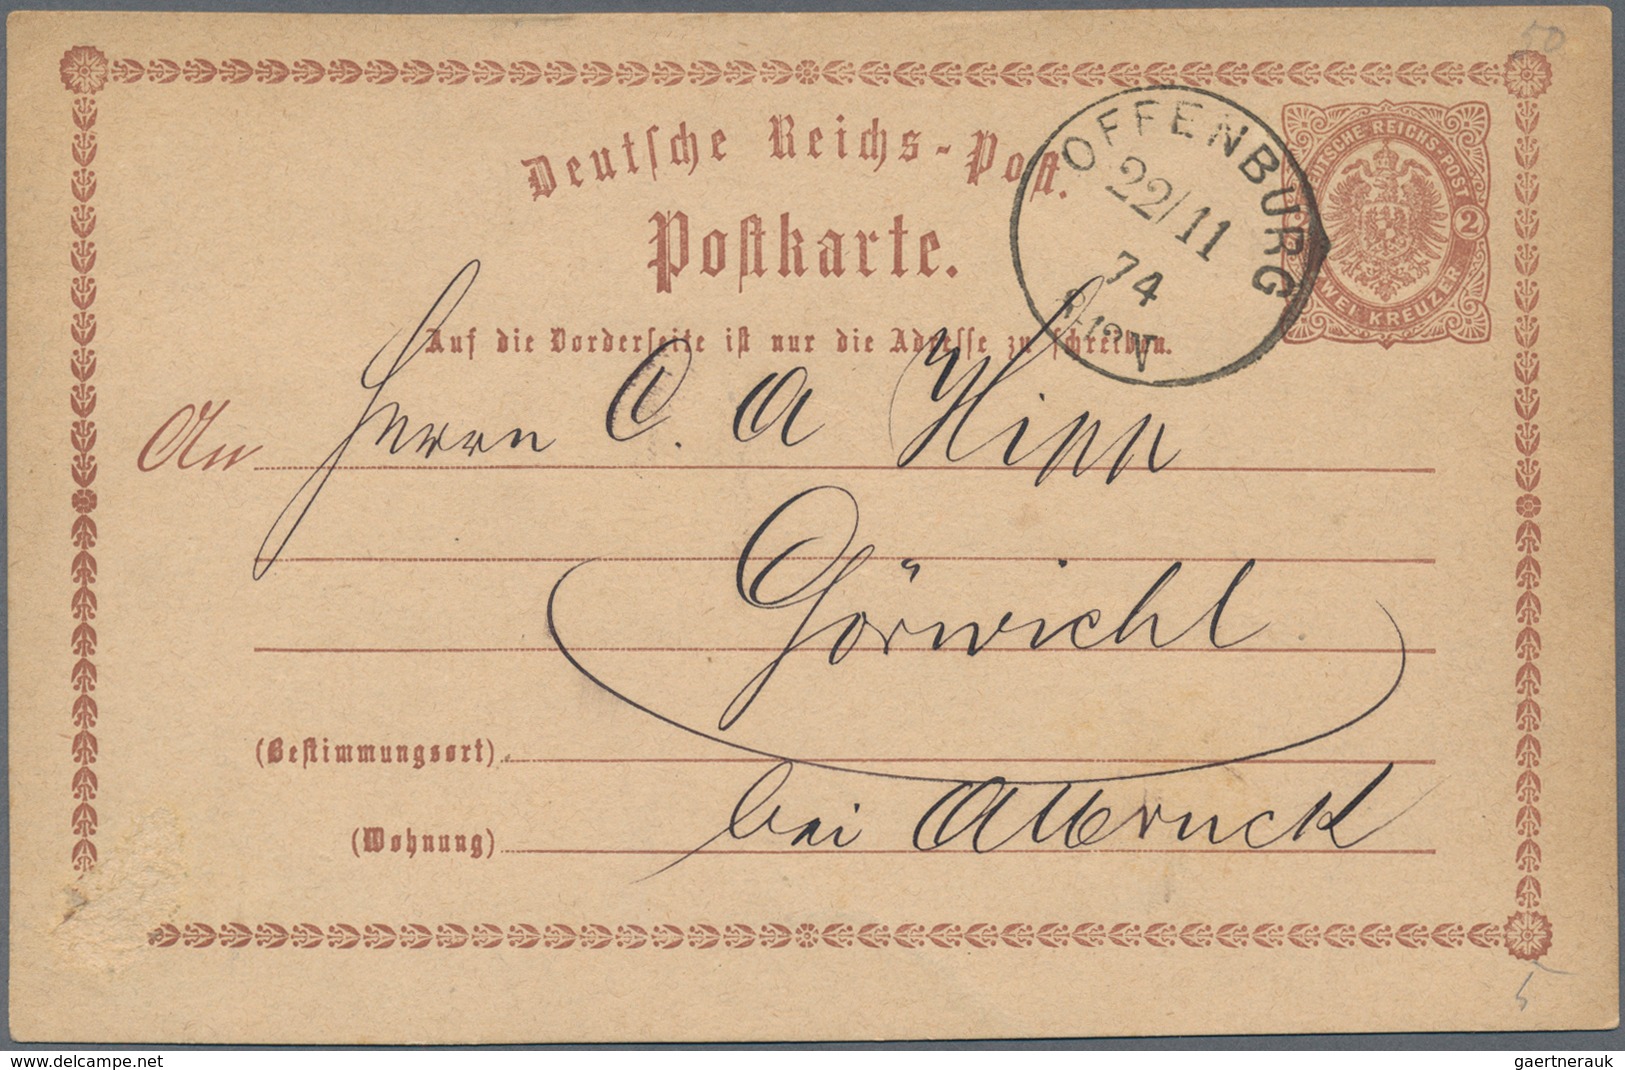 50
Deutsche Reichs-Post.
Postkarte.
OFFENBURG
22/11
74
V
DEUTSCHE REICHS-POST
2
ZWEI KREUZER
Auf die Vorderseite ist nur die Adresse zu schreiben.
An Herrn C. A Hipp
Görwihl
(Bestimmungsort)
bei Albbruck
(Wohnung)
5
www.delcampe.net
gaertnerauk